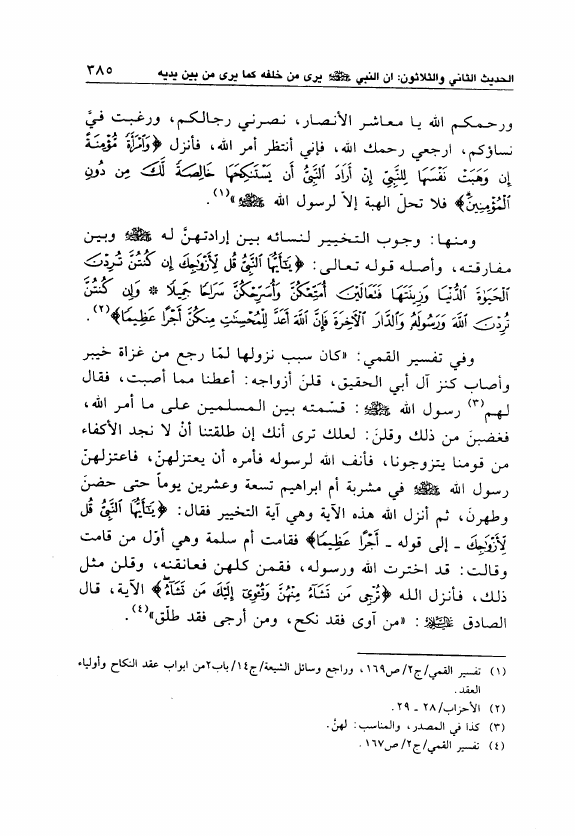 الحديث الثاني والثلاثون: ان النبي ﷺ يرى من خلفه كما يرى من بين يديه ٣٨٥
ورحمكم الله يا معاشر الأنصار، نصرني رجالكم، ورغبت فيَّ
نساؤكم، ارجعي رحمك الله، فإني أنتظر أمر الله، فأنزل ﴿وَٱمْرَأَةً مُّؤْمِنَةً
إِن وَهَبَتْ نَفْسَهَا لِلنَّبِيِّ إِنْ أَرَادَ ٱلنَّبِيُّ أَن يَسْتَنكِحَهَا خَالِصَةً لَّكَ مِن دُونِ
ٱلْمُؤْمِنِينَۗ﴾ فلا تحلّ الهبة إلاّ لرسول الله ﷺ»(١).
ومنها: وجوب التخيير لنسائه بين إرادتهنّ له ﷺ وبين
مفارقته، وأصله قوله تعالى: ﴿يَٰٓأَيُّهَا ٱلنَّبِيُّ قُل لِّأَزْوَٰجِكَ إِن كُنتُنَّ تُرِدْنَ
ٱلْحَيَوٰةَ ٱلدُّنْيَا وَزِينَتَهَا فَتَعَالَيْنَ أُمَتِّعْكُنَّ وَأُسَرِّحْكُنَّ سَرَاحًا جَمِيلًا * وَإِن كُنتُنَّ
تُرِدْنَ ٱللَّهَ وَرَسُولَهُۥ وَٱلدَّارَ ٱلْءَاخِرَةَ فَإِنَّ ٱللَّهَ أَعَدَّ لِلْمُحْسِنَٰتِ مِنكُنَّ أَجْرًا عَظِيمًا﴾(٢).
وفي تفسير القمي: «كان سبب نزولها لمّا رجع من غزاة خيبر
وأصاب كنز آل أبي الحقيق، قلنَ أزواجه: أعطنا مما أصبت، فقال
لهم(٣) رسول الله ﷺ: قسّمته بين المسلمين على ما أمر الله،
فغضبنَ من ذلك وقلنَ: لعلك ترى أنك إن طلقتنا أنْ لا نجد الأكفاء
من قومنا يتزوجونا، فأنف الله لرسوله فأمره أن يعتزلهنّ، فاعتزلهنّ
رسول الله ﷺ في مشربة أم ابراهيم تسعة وعشرين يوماً حتى حضنَ
وطهرنَ، ثم أنزل الله هذه الآية وهي آية التخيير فقال: ﴿يَٰٓأَيُّهَا ٱلنَّبِيُّ قُل
لِّأَزْوَٰجِكَ ـ إلى قوله ـ أَجْرًا عَظِيمًا﴾ فقامت أم سلمة وهي أوّل من قامت
وقالت: قد اخترت الله ورسوله، فقمن كلهن فعانقنه، وقلن مثل
ذلك، فأنزل الله ﴿تُرْجِي مَن تَشَآءُ مِنْهُنَّ وَتُـْٔوِيٓ إِلَيْكَ مَن تَشَآءُۖ﴾ الآية، قال
الصادق عليه السلام: «من آوى فقد نكح، ومن أرجى فقد طلّق»(٤).
(١) تفسير القمي/ج٢/ص١٦٩، وراجع وسائل الشيعة/ج١٤/باب٢من ابواب عقد النكاح وأولياء
العقد.
(٢) الأحزاب/٢٨ ـ ٢٩.
(٣) كذا في المصدر، والمناسب: لهنّ.
(٤) تفسير القمي/ج٢/ص١٦٧.